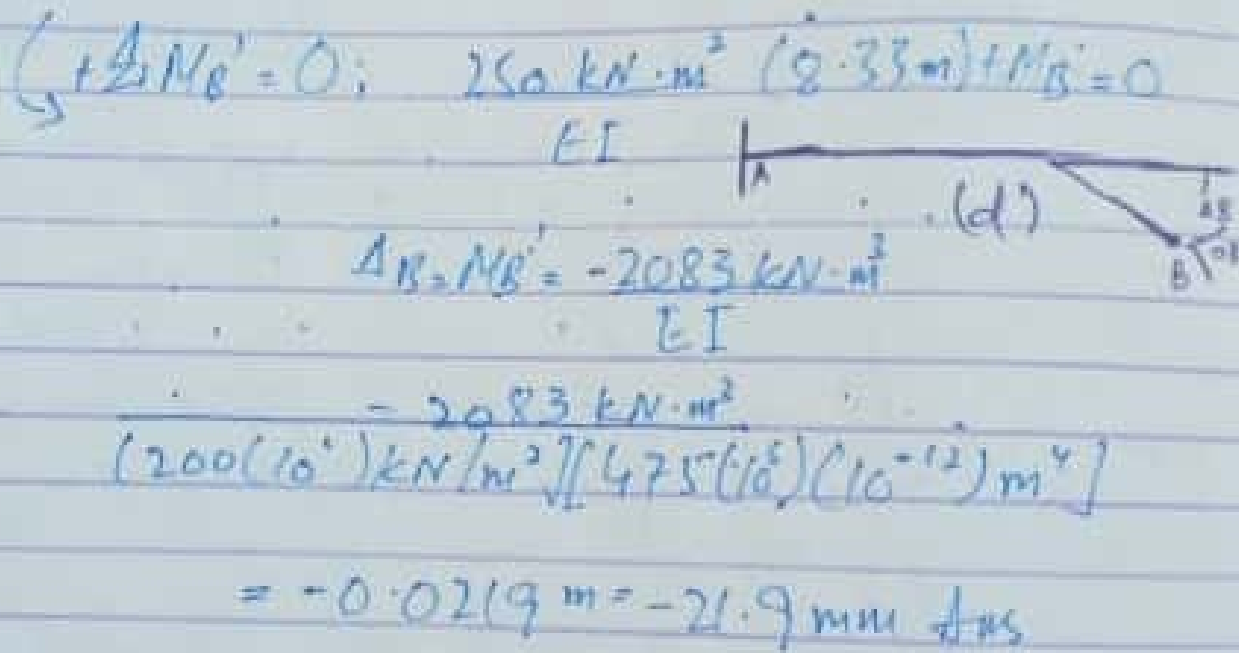 +ΣM_B' = 0; 250 kN·m² (8.33 m) + M_B' = 0
EI
A
(d)
Δ_B = M_B' = -2083 kN·m³
B
EI
- 2083 kN·m³
(200(10⁶) kN/m²)[475(10⁶)(10⁻¹²) m⁴]
= -0.0219 m = -21.9 mm Ans